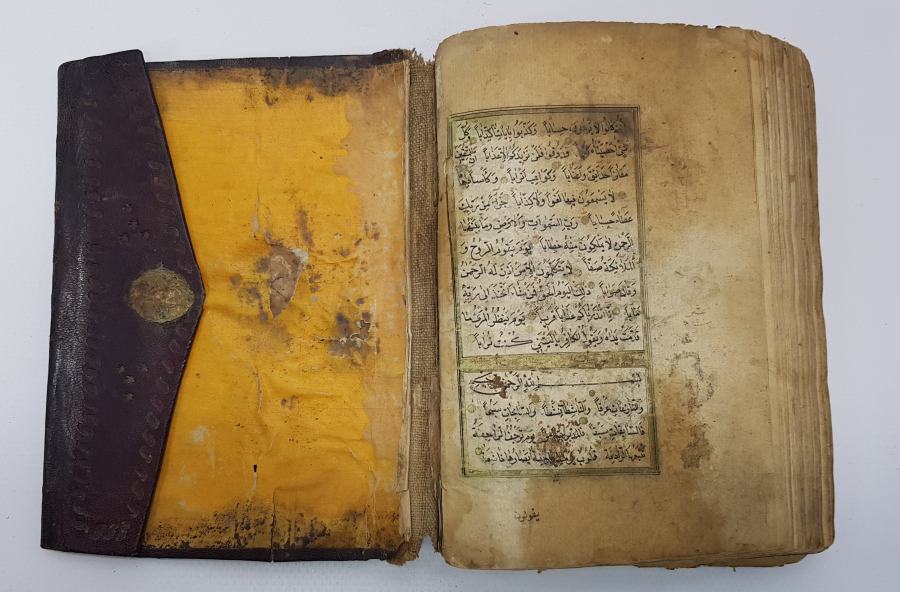 انهم كانوا لا يرجون حساباً وكذبوا باياتنا كذاباً وكل
شئ احصيناه كتاباً فذوقوا فلن نزيدكم الا عذاباً ان للمتقين
مفازاً حدائق واعناباً وكواعب اتراباً وكأساً دهاقاً
لا يسمعون فيها لغواً ولا كذاباً جزآء من ربك
عطاء حساباً رب السموات والارض وما بينهما
الرحمن لا يملكون منه خطاباً يوم يقوم الروح و
الملائكة صفاً لا يتكلمون الا من اذن له الرحمن
وقال صواباً ذلك اليوم الحق فمن شاء اتخذ الى ربه
مآباً انا انذرناكم عذاباً قريباً يوم ينظر المرء ما
قدمت يداه ويقول الكافر ياليتني كنت تراباً
بسم الله الرحمن الرحيم
والنازعات غرقاً والناشطات نشطاً والسابحات سبحاً
فالسابقات سبقاً فالمدبرات امراً يوم ترجف الراجفة
تتبعها الرادفة قلوب يومئذ واجفة ابصارها خاشعة
يقولون